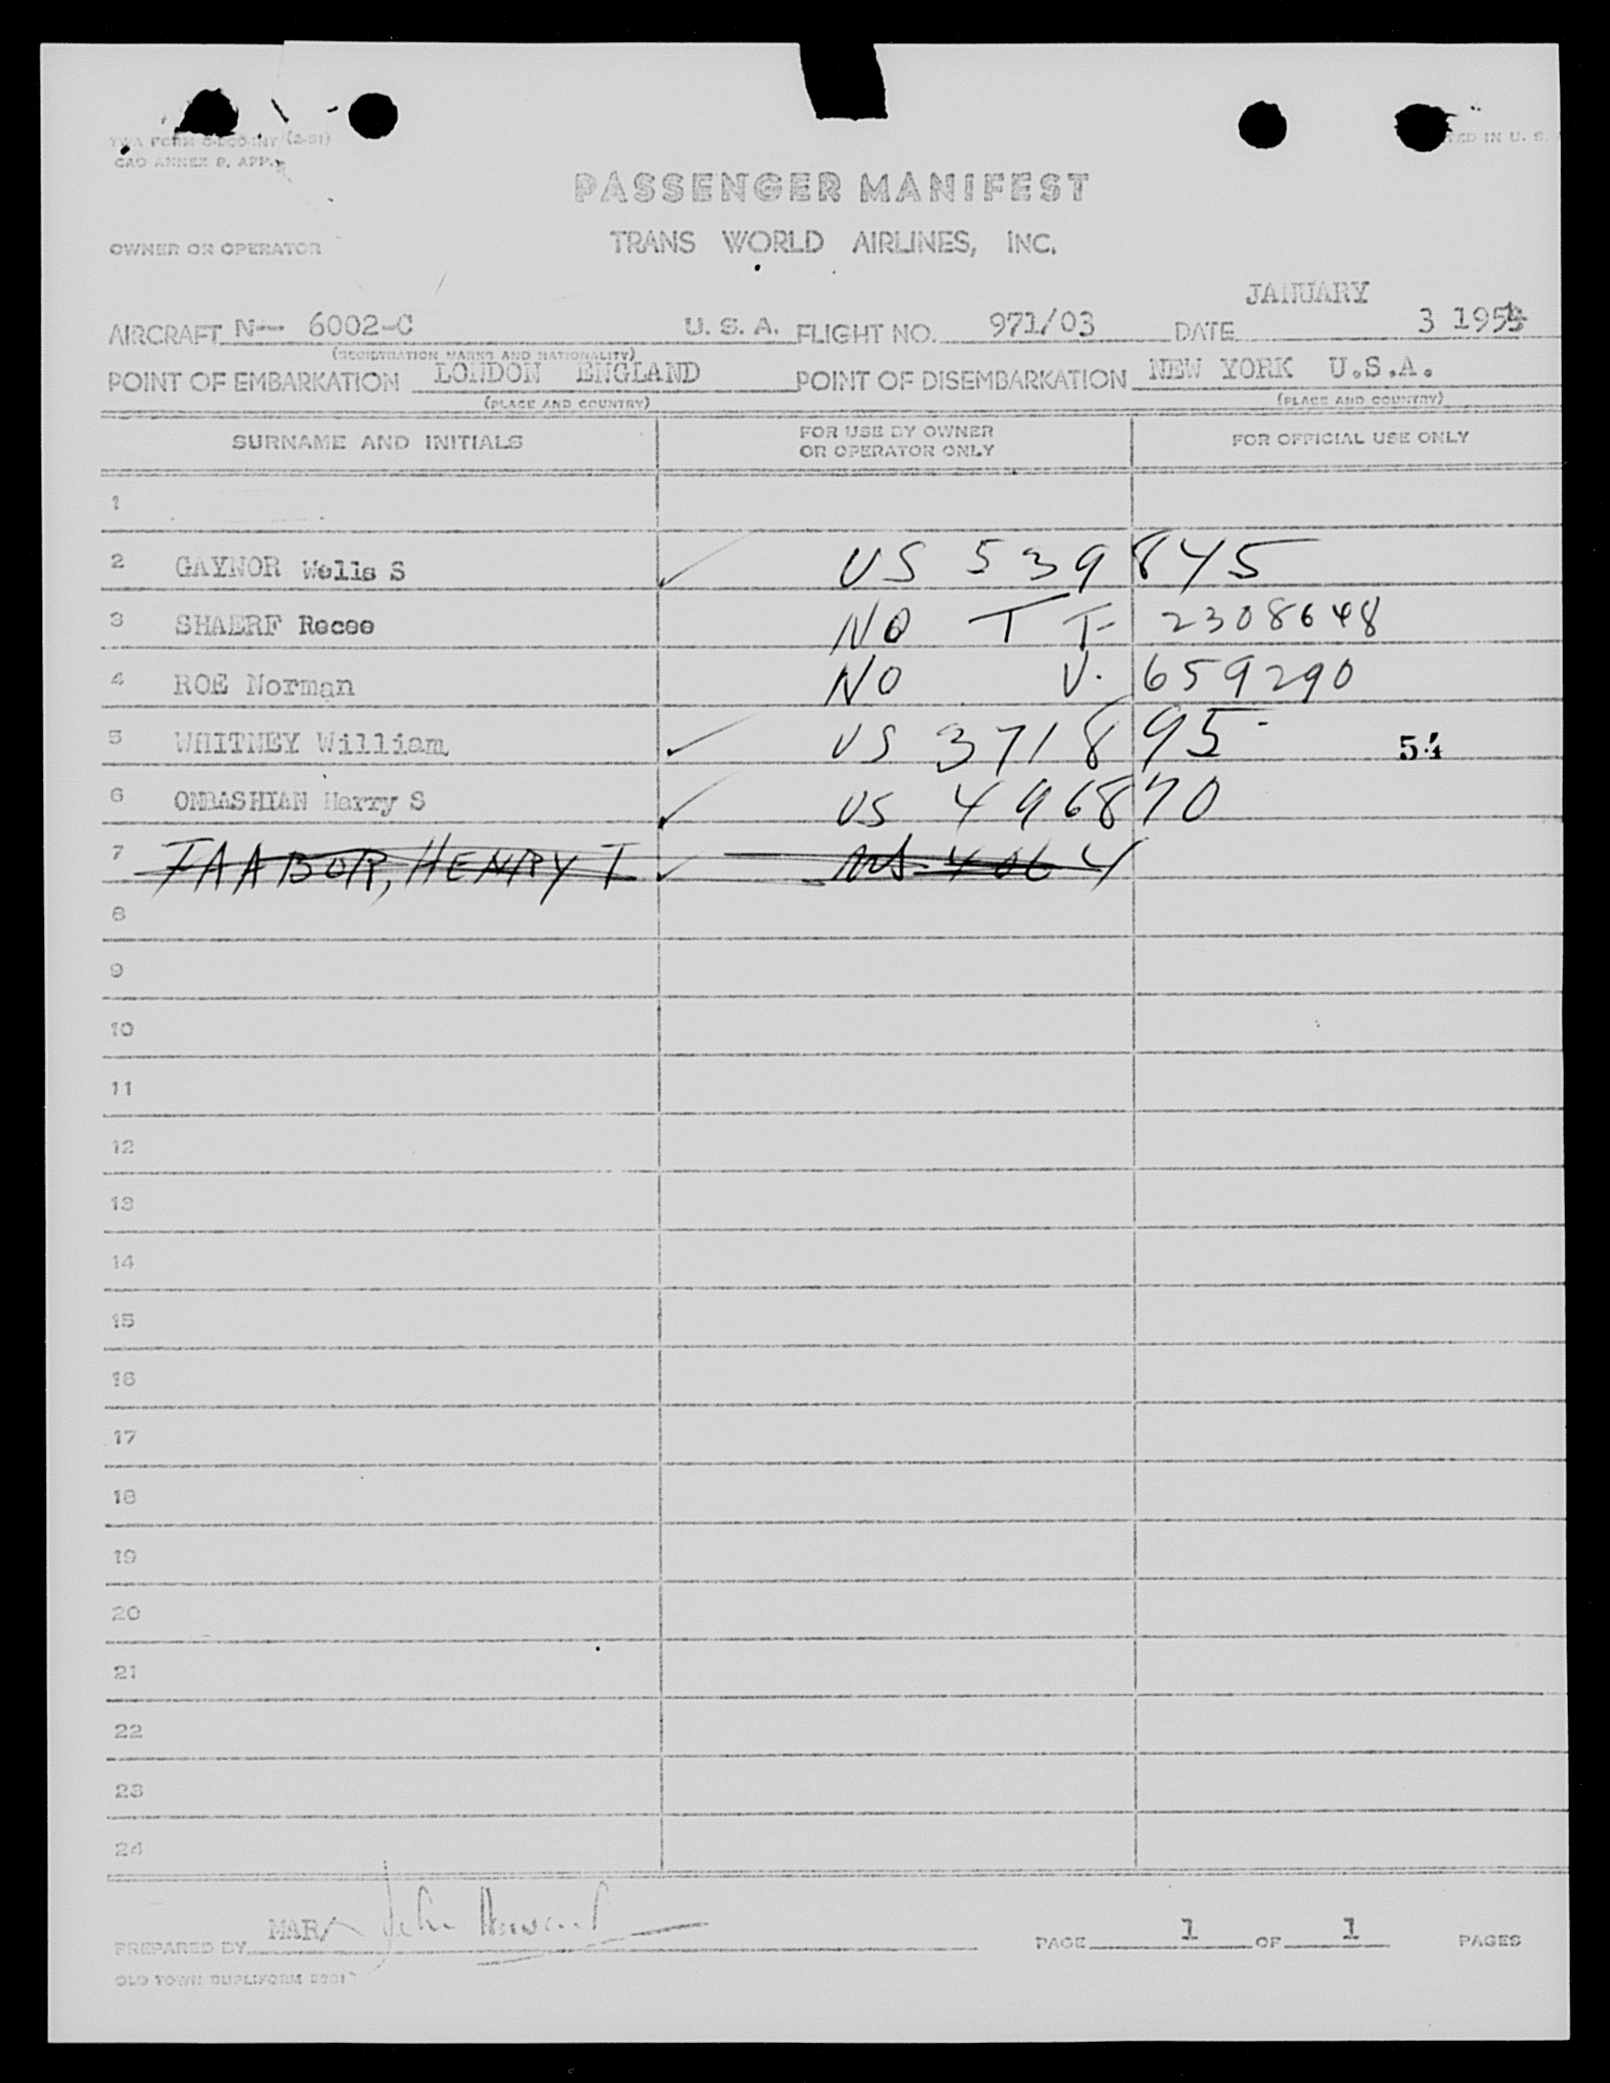 TWA FORM (2-51)
CAO ANNEX 9, APP.
IN U. S.
PASSENGER MANIFEST
OWNER OR OPERATOR TRANS WORLD AIRLINES, INC.
JANUARY
AIRCRAFT N-- 6002-C U. S. A. FLIGHT NO. 971/03 DATE 3 1954
(REGISTRATION MARKS AND NATIONALITY)
POINT OF EMBARKATION LONDON ENGLAND POINT OF DISEMBARKATION NEW YORK U.S.A.
(PLACE AND COUNTRY) (PLACE AND COUNTRY)
SURNAME AND INITIALS FOR USE BY OWNER OR OPERATOR ONLY FOR OFFICIAL USE ONLY
1
2 GAYNOR Wells S ✓ US 539845
3 SHAERF Recee NO T T- 2308648
4 ROE Norman NO V. 659290
5 WHITNEY William ✓ US 371895 - 54
6 ONBASHIAN Harry S ✓ US 496870
7 FAABOR, HENRY T ✓ 
8
9
10
11
12
13
14
15
16
17
18
19
20
21
22
23
24
PREPARED BY MAR/ John PAGE 1 OF 1 PAGES
OLD TOWN DUPLIFORM